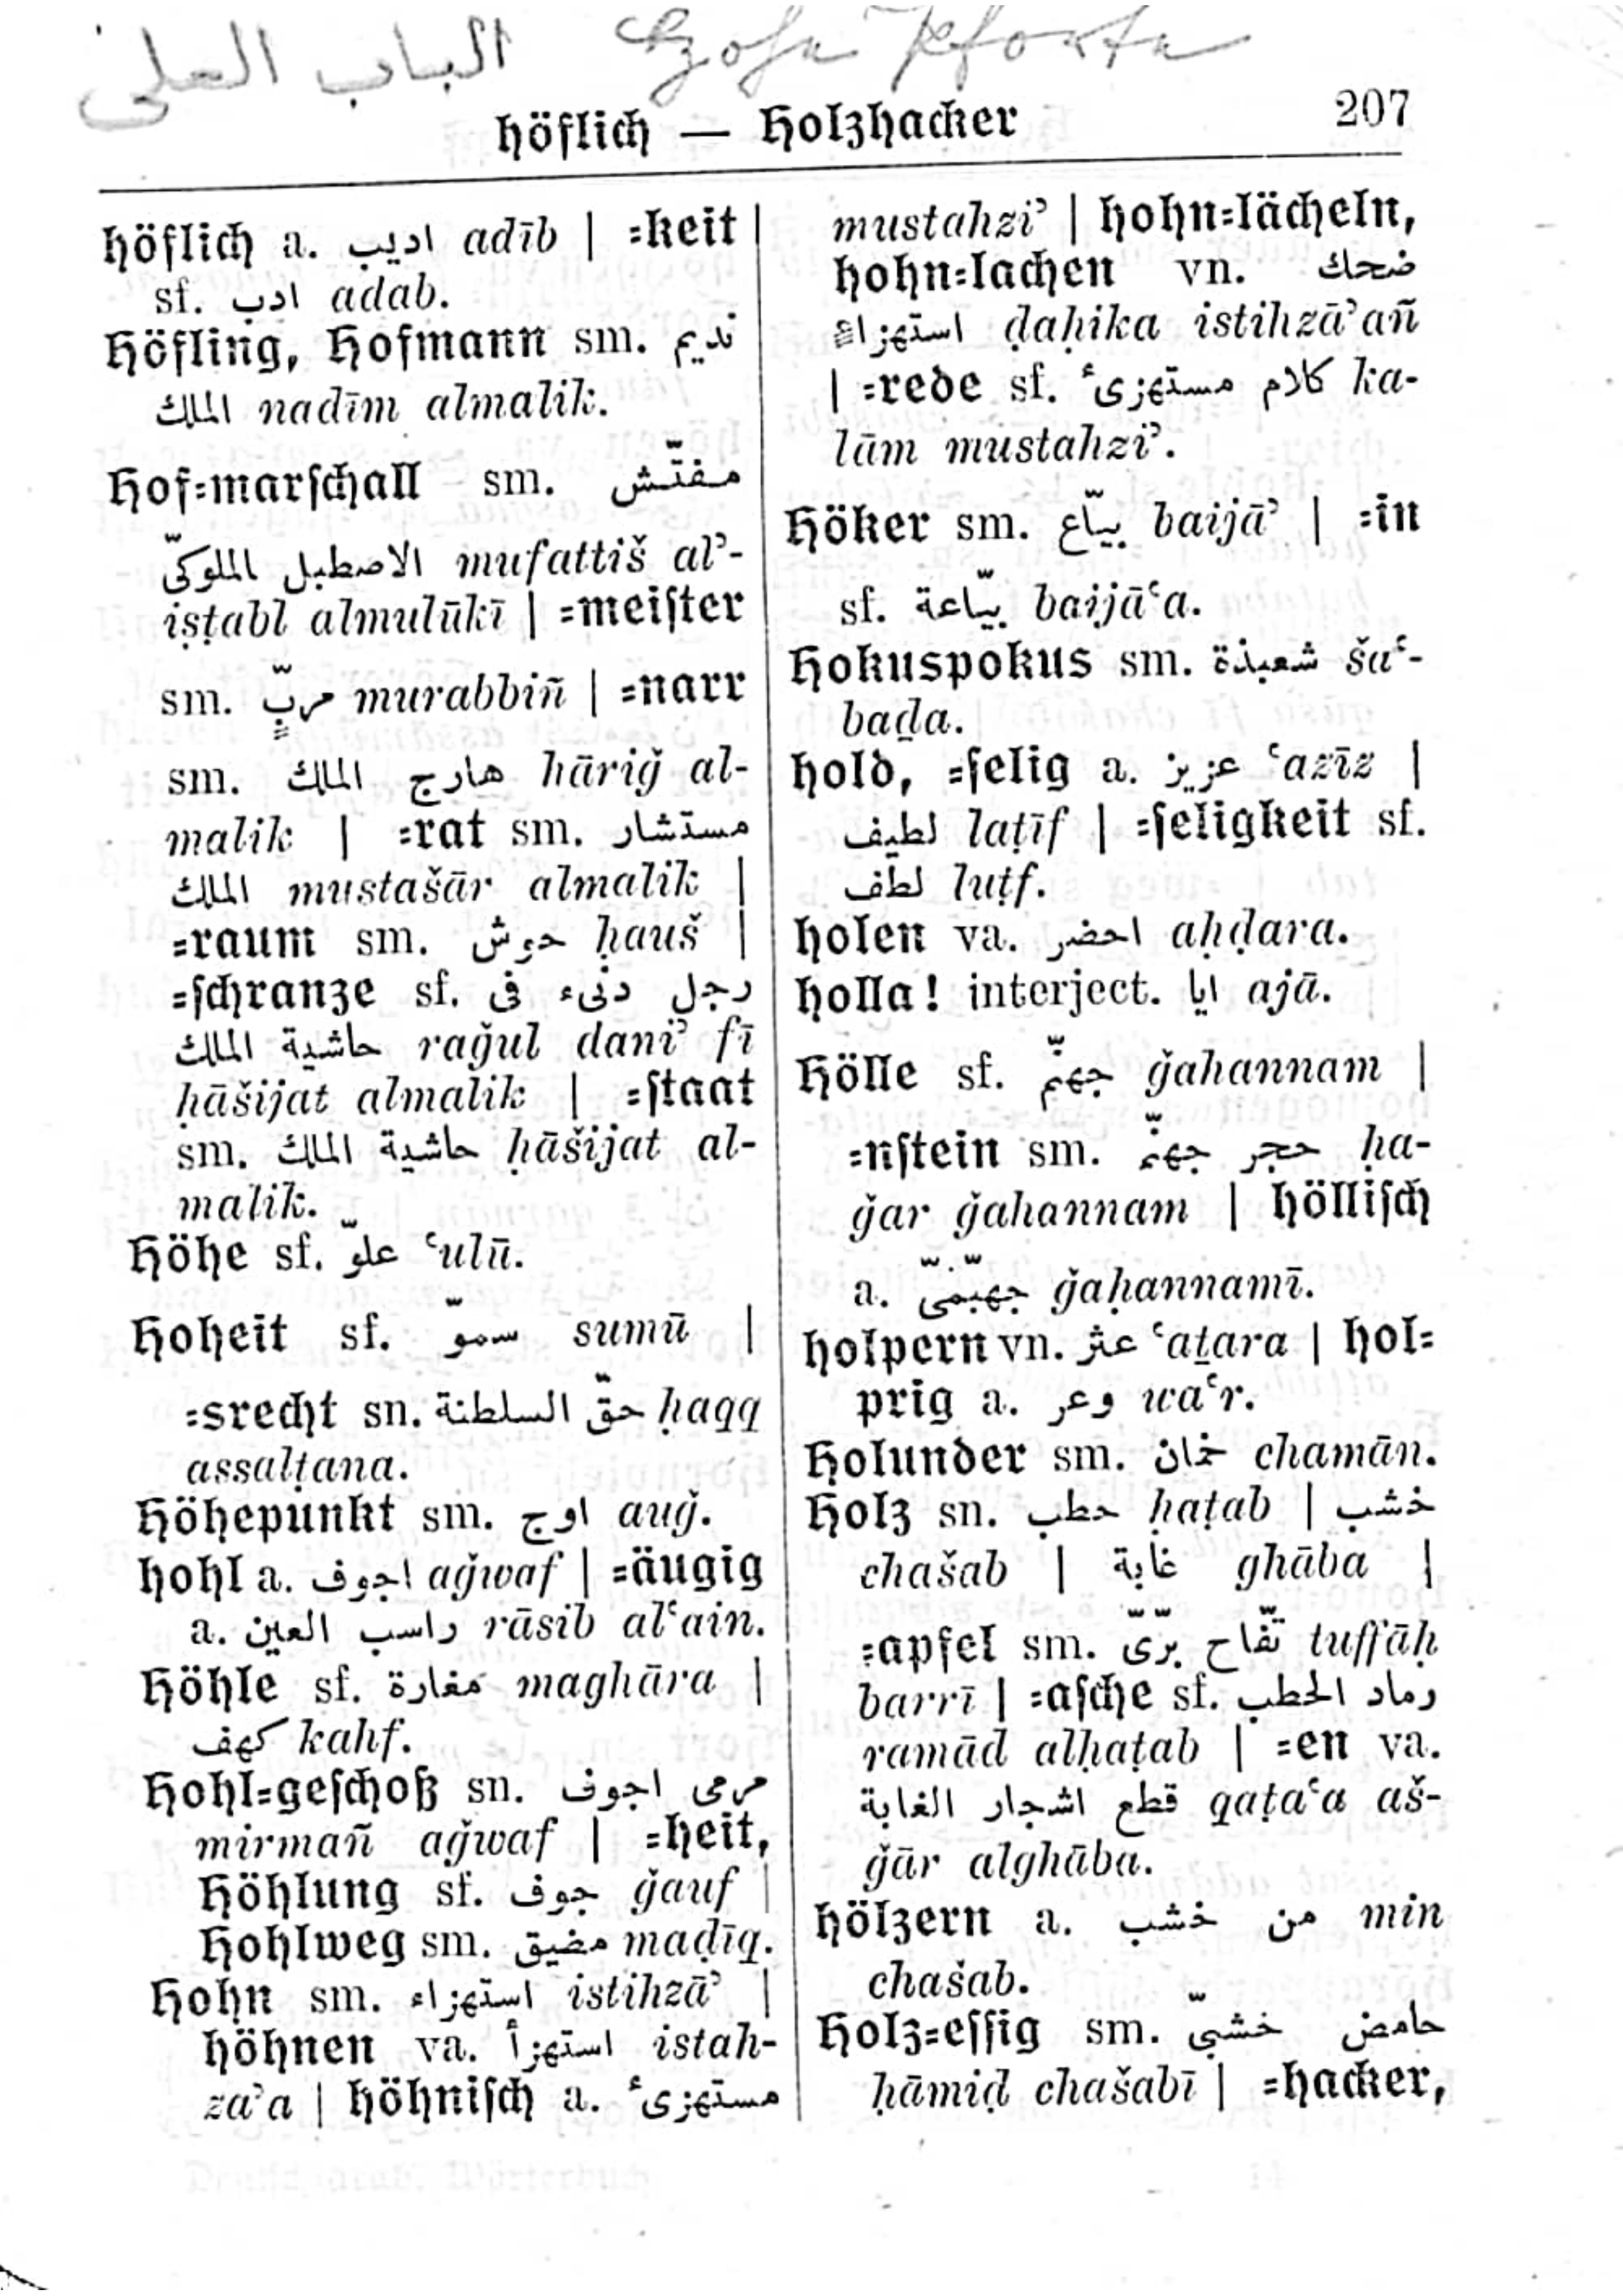 الباب العلى Hohe Pforte
höflich — Holzhacker 207
höflich a. اديب adīb | =keit |
sf. ادب adab.
Höfling, Hofmann sm. نديم
الملك nadīm almalik.
Hof=marſchall sm. مفتّش
الاصطبل الملوكىّ mufattiš al’-
iṣṭabl almulūkī | =meiſter
sm. مربٍّ murabbiñ | =narr
sm. هارج الملك hāriǧ al-
malik | =rat sm. مستشار
الملك mustašār almalik |
=raum sm. حوش ḥauš |
=ſchranze sf. رجل دنىء فى
حاشية الملك raǧul dani’ fī
ḥāšijat almalik | =ſtaat
sm. حاشية الملك ḥāšijat al-
malik.
Höhe sf. علوّ ‘ulū.
Hoheit sf. سموّ sumū |
=srecht sn. حقّ السلطنة ḥaqq
assalṭana.
Höhepunkt sm. اوج auǧ.
hohl a. اجوف aǧwaf | =äugig
a. راسب العين rāsib al‘ain.
Höhle sf. مغارة maghāra |
كهف kahf.
Hohl=geſchoß sn. مرمى اجوف
mirmañ aǧwaf | =heit,
Höhlung sf. جوف ǧauf |
Hohlweg sm. مضيق maḍīq.
Hohn sm. استهزاء istihzā’ |
höhnen va. استهزأ istah-
za’a | höhniſch a. مستهزىٔ
mustahzi’ | hohn=lächeln,
hohn=lachen vn. ضحك
استهزاءً ḍaḥika istihzā’añ
| =rede sf. كلام مستهزىٔ ka-
lām mustahzi’.
Höker sm. بيّاع baijā’ | =in
sf. بيّاعة baijā‘a.
Hokuspokus sm. شعبذة ša‘-
baḏa.
hold, =ſelig a. عزيز ‘azīz |
لطيف laṭīf | =ſeligkeit sf.
لطف luṭf.
holen va. احضر aḥḍara.
holla! interject. ايا ajā.
Hölle sf. جهنّم ǧahannam |
=nſtein sm. حجر جهنّم ḥa-
ǧar ǧahannam | hölliſch
a. جهنّمىّ ǧaḥannamī.
holpern vn. عثر ‘aṯara | hol=
prig a. وعر wa‘r.
Holunder sm. خمان chamān.
Holz sn. حطب ḥaṭab | خشب
chašab | غابة ghāba |
=apfel sm. تفّاح برّىّ tuffāḥ
barrī | =aſche sf. رماد الحطب
ramād alḥaṭab | =en va.
قطع اشجار الغابة qaṭa‘a aš-
ǧār alghāba.
hölzern a. من خشب min
chašab.
Holz=eſſig sm. حامض خشبىّ
ḥāmiḍ chašabī | =hacker,